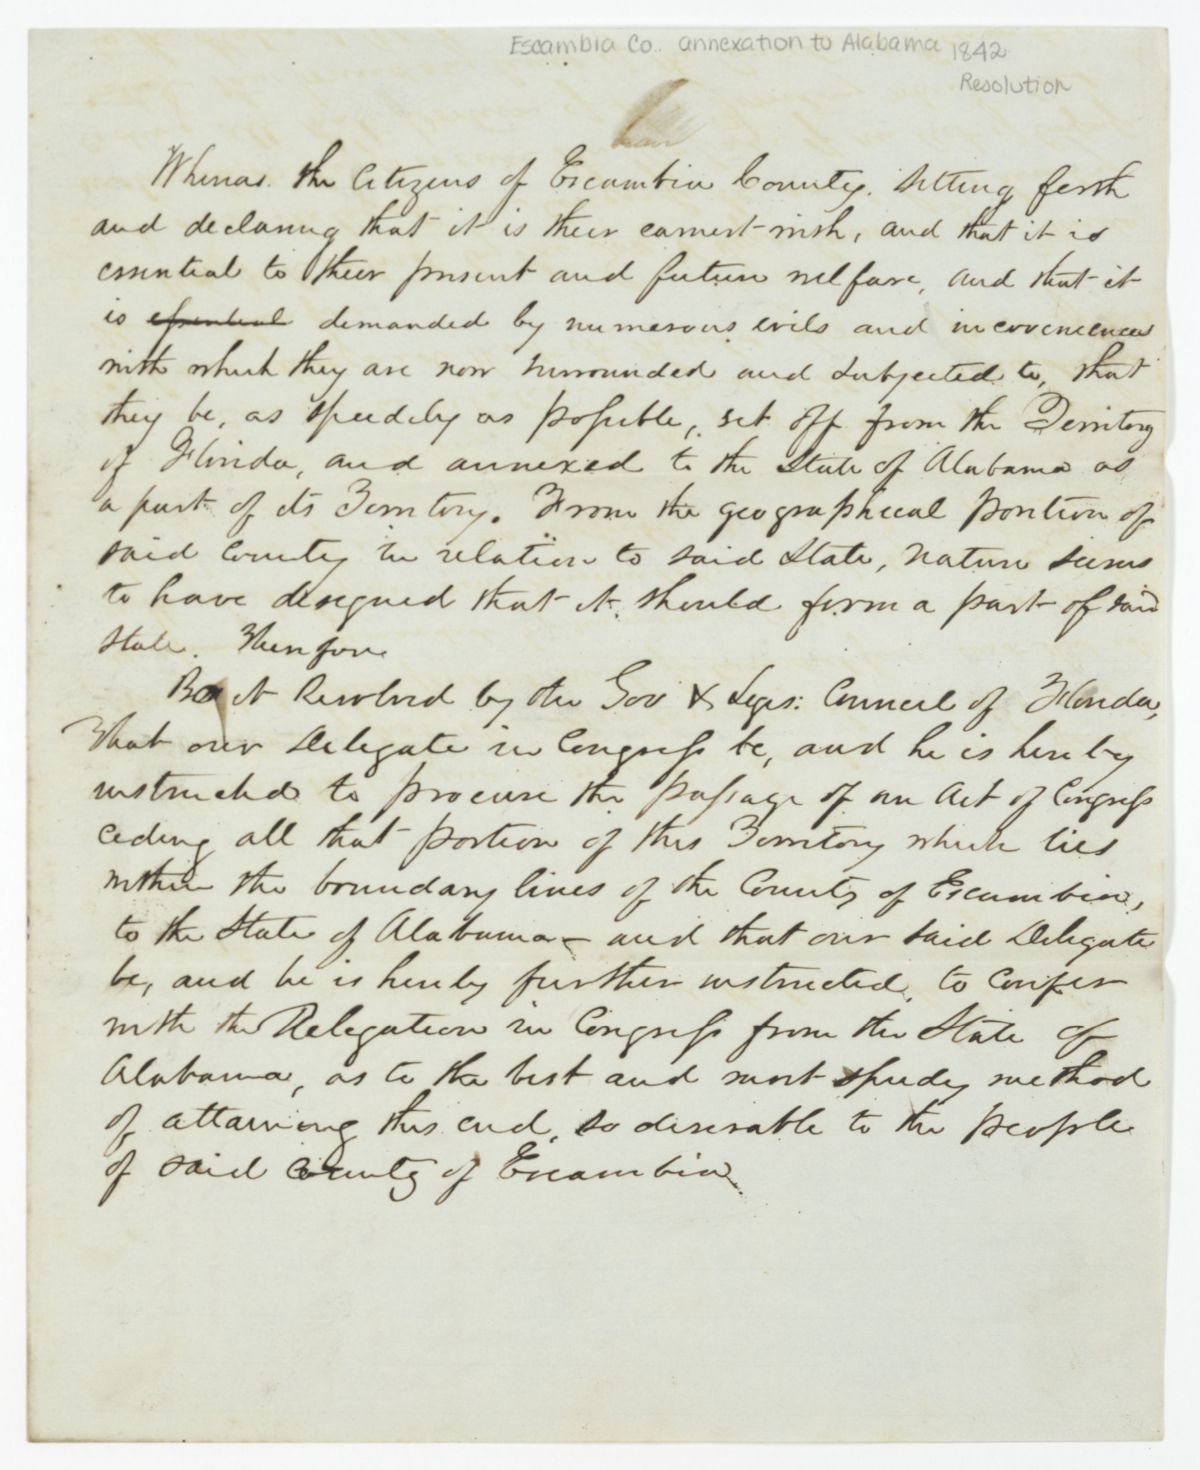 Escambia Co. annexation to Alabama 1842
Resolution
Whereas the Citizens of Escambia County. setting forth
and declaring that it is their earnest wish, and that it is
essential to their present and future welfare, and that it
is essential demanded by numerous evils and inconveniences
with which they are now surrounded and subjected to, that
they be, as speedily as possible, set off from the Territory
of Florida, and annexed to the State of Alabama as
a part of its Territory. From the geographical position of
said County in relation to said State, nature seems
to have designed that it should form a part of said
State. Therefore
Be it Resolved by the Gov & Legis: Council of Florida,
That our Delegate in Congress be, and he is hereby
instructed to procure the passage of an Act of Congress
ceding all that portion of this Territory which lies
within the boundary lines of the County of Escambia,
to the State of Alabama – and that our said Delegate
be, and he is hereby further instructed, to confer
with the Delegation in Congress from the State of
Alabama, as to the best and most speedy method
of attaining this end, so desirable to the people
of said County of Escambia.